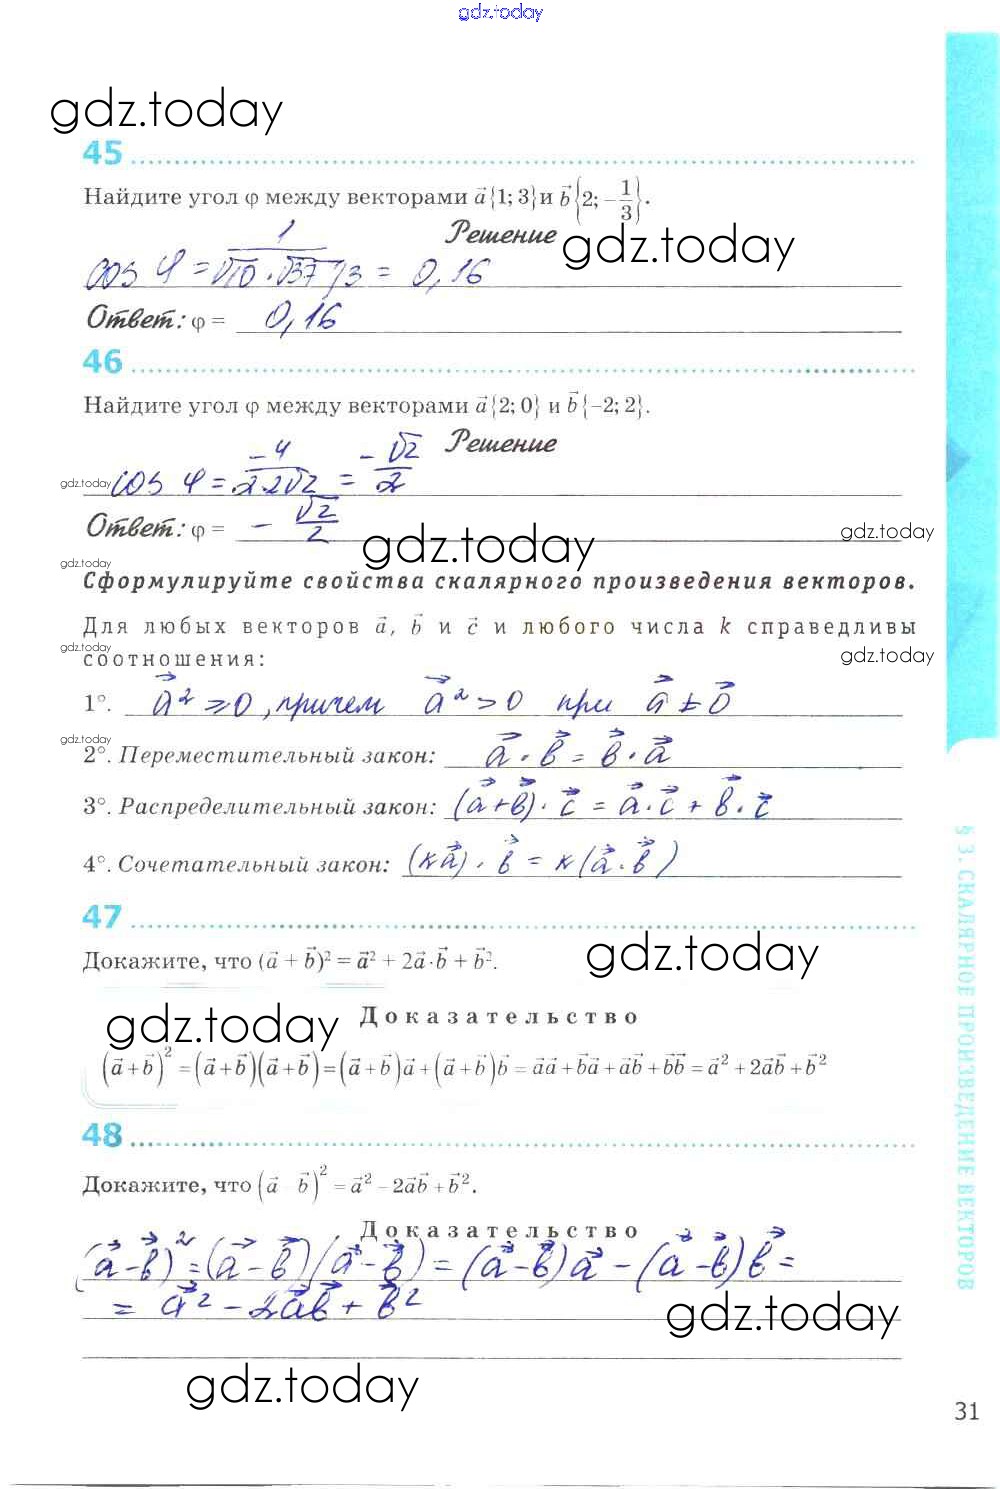 gdz.today
gdz.today
45
Найдите угол φ между векторами a⃗{1; 3} и b⃗{2; −1/3}.
Решение
gdz.today
cos φ = 1/(√10 · √37/3) = 0,16
Ответ: φ = 0,16
46
Найдите угол φ между векторами a⃗{2; 0} и b⃗{−2; 2}.
Решение
gdz.today cos φ = −4/(2·2√2) = −√2/2
Ответ: φ = −√2/2
gdz.today
gdz.today
gdz.today
Сформулируйте свойства скалярного произведения векторов.
Для любых векторов a⃗, b⃗ и c⃗ и любого числа k справедливы
gdz.today
соотношения:
gdz.today
1°. a⃗² ⩾ 0, причем a⃗² > 0 при a⃗ ≠ 0⃗
gdz.today
2°. Переместительный закон: a⃗ · b⃗ = b⃗ · a⃗
3°. Распределительный закон: (a⃗+b⃗) · c⃗ = a⃗·c⃗ + b⃗·c⃗
4°. Сочетательный закон: (кa⃗) · b⃗ = к(a⃗·b⃗)
47
Докажите, что (a⃗ + b⃗)² = a⃗² + 2a⃗·b⃗ + b⃗².
gdz.today
Доказательство
gdz.today
(a⃗+b⃗)² = (a⃗+b⃗)(a⃗+b⃗) = (a⃗+b⃗)a⃗ + (a⃗+b⃗)b⃗ = a⃗a⃗ + b⃗a⃗ + a⃗b⃗ + b⃗b⃗ = a⃗² + 2a⃗b⃗ + b⃗²
48
Докажите, что (a⃗ b⃗)² = a⃗² − 2a⃗b⃗ + b⃗².
Доказательство
(a⃗−b⃗)² = (a⃗−b⃗)(a⃗−b⃗) = (a⃗−b⃗)a⃗ − (a⃗−b⃗)b⃗ =
= a⃗² − 2a⃗b⃗ + b⃗²
gdz.today
gdz.today
§ 3. СКАЛЯРНОЕ ПРОИЗВЕДЕНИЕ ВЕКТОРОВ
31